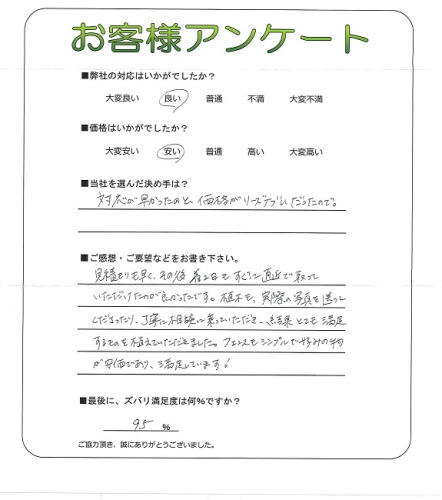 お客様アンケート
■弊社の対応はいかがでしたか？
大変良い 良い 普通 不満 大変不満
■価格はいかがでしたか？
大変安い 安い 普通 高い 大変高い
■当社を選んだ決め手は？
対応が早かったのと、価格がリーズナブルだったので。
■ご感想・ご要望などをお書き下さい。
見積もりも早く、その後着工日もすぐに直近で取って
いただけたのが良かったです。植木も、実際の写真を送って
くださったり、丁寧に相談に乗っていただき、結果とても満足
するものを植えていただきました。フェンスもシンプルで好みの物
が安価であり、満足しています！
■最後に、ズバリ満足度は何%ですか？
95 %
ご協力頂き、誠にありがとうございました。